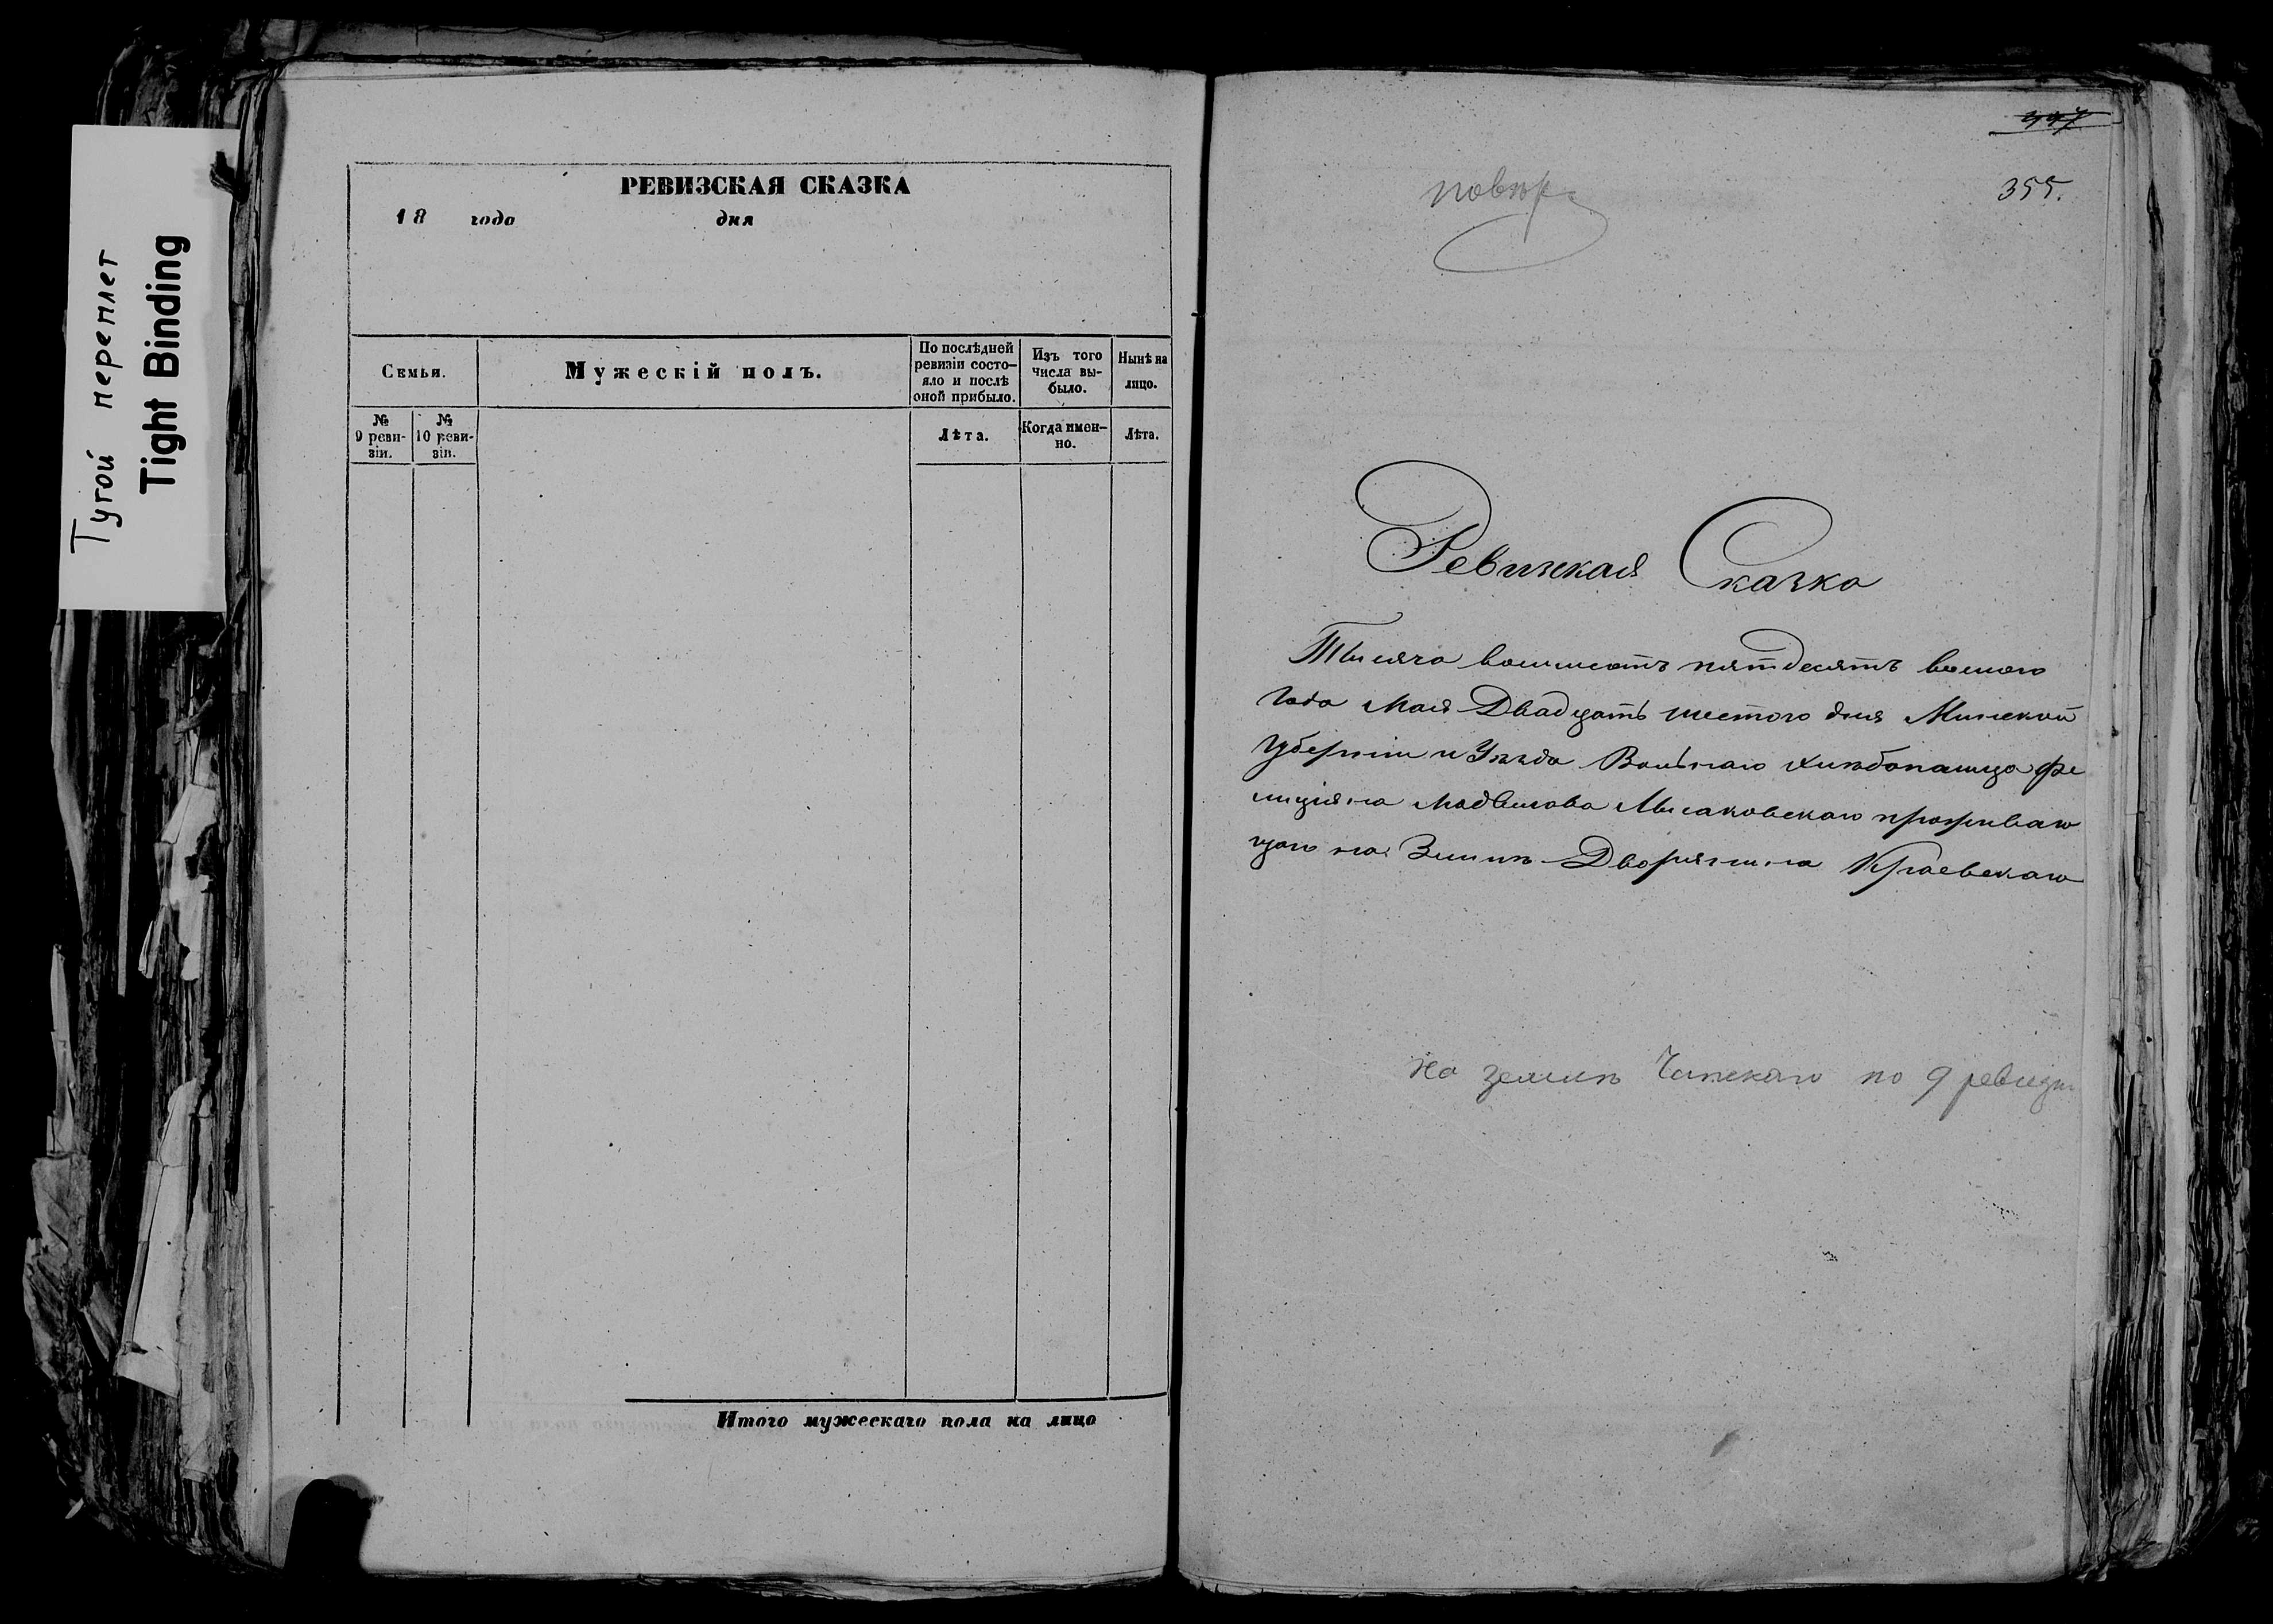 Тугой переплет
Tight Binding
РЕВИЗСКАЯ СКАЗКА
18 года дня
Семья.
Мужескій полъ.
По послѣдней
ревизіи состо-
яло и послѣ
оной прибыло.
Изъ того
числа вы-
было.
Нынѣ на
лицо.
№
9 реви-
зіи.
№
10 реви-
зіи.
Лѣта.
Когда имен-
но.
Лѣта.
Итого мужескаго пола на лицо
347
355.
повѣр
Ревизкая Сказка
Тысяча восымсотъ пятдесятъ восмого
Года Мая Двадцать шестого дня Минской
Губерніи и Уѣзда Вольнаго хлѣбопашца Фе
лиціяна Мысаковскаго проживаю
щаго на Земли Дворянина Краевскаго
на земли Чапскаго по 9 ревизіи